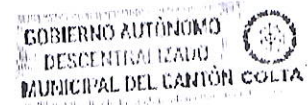 GOBIERNO AUTÓNOMO
DESCENTRALIZADO
MUNICIPAL DEL CANTÓN COLTA